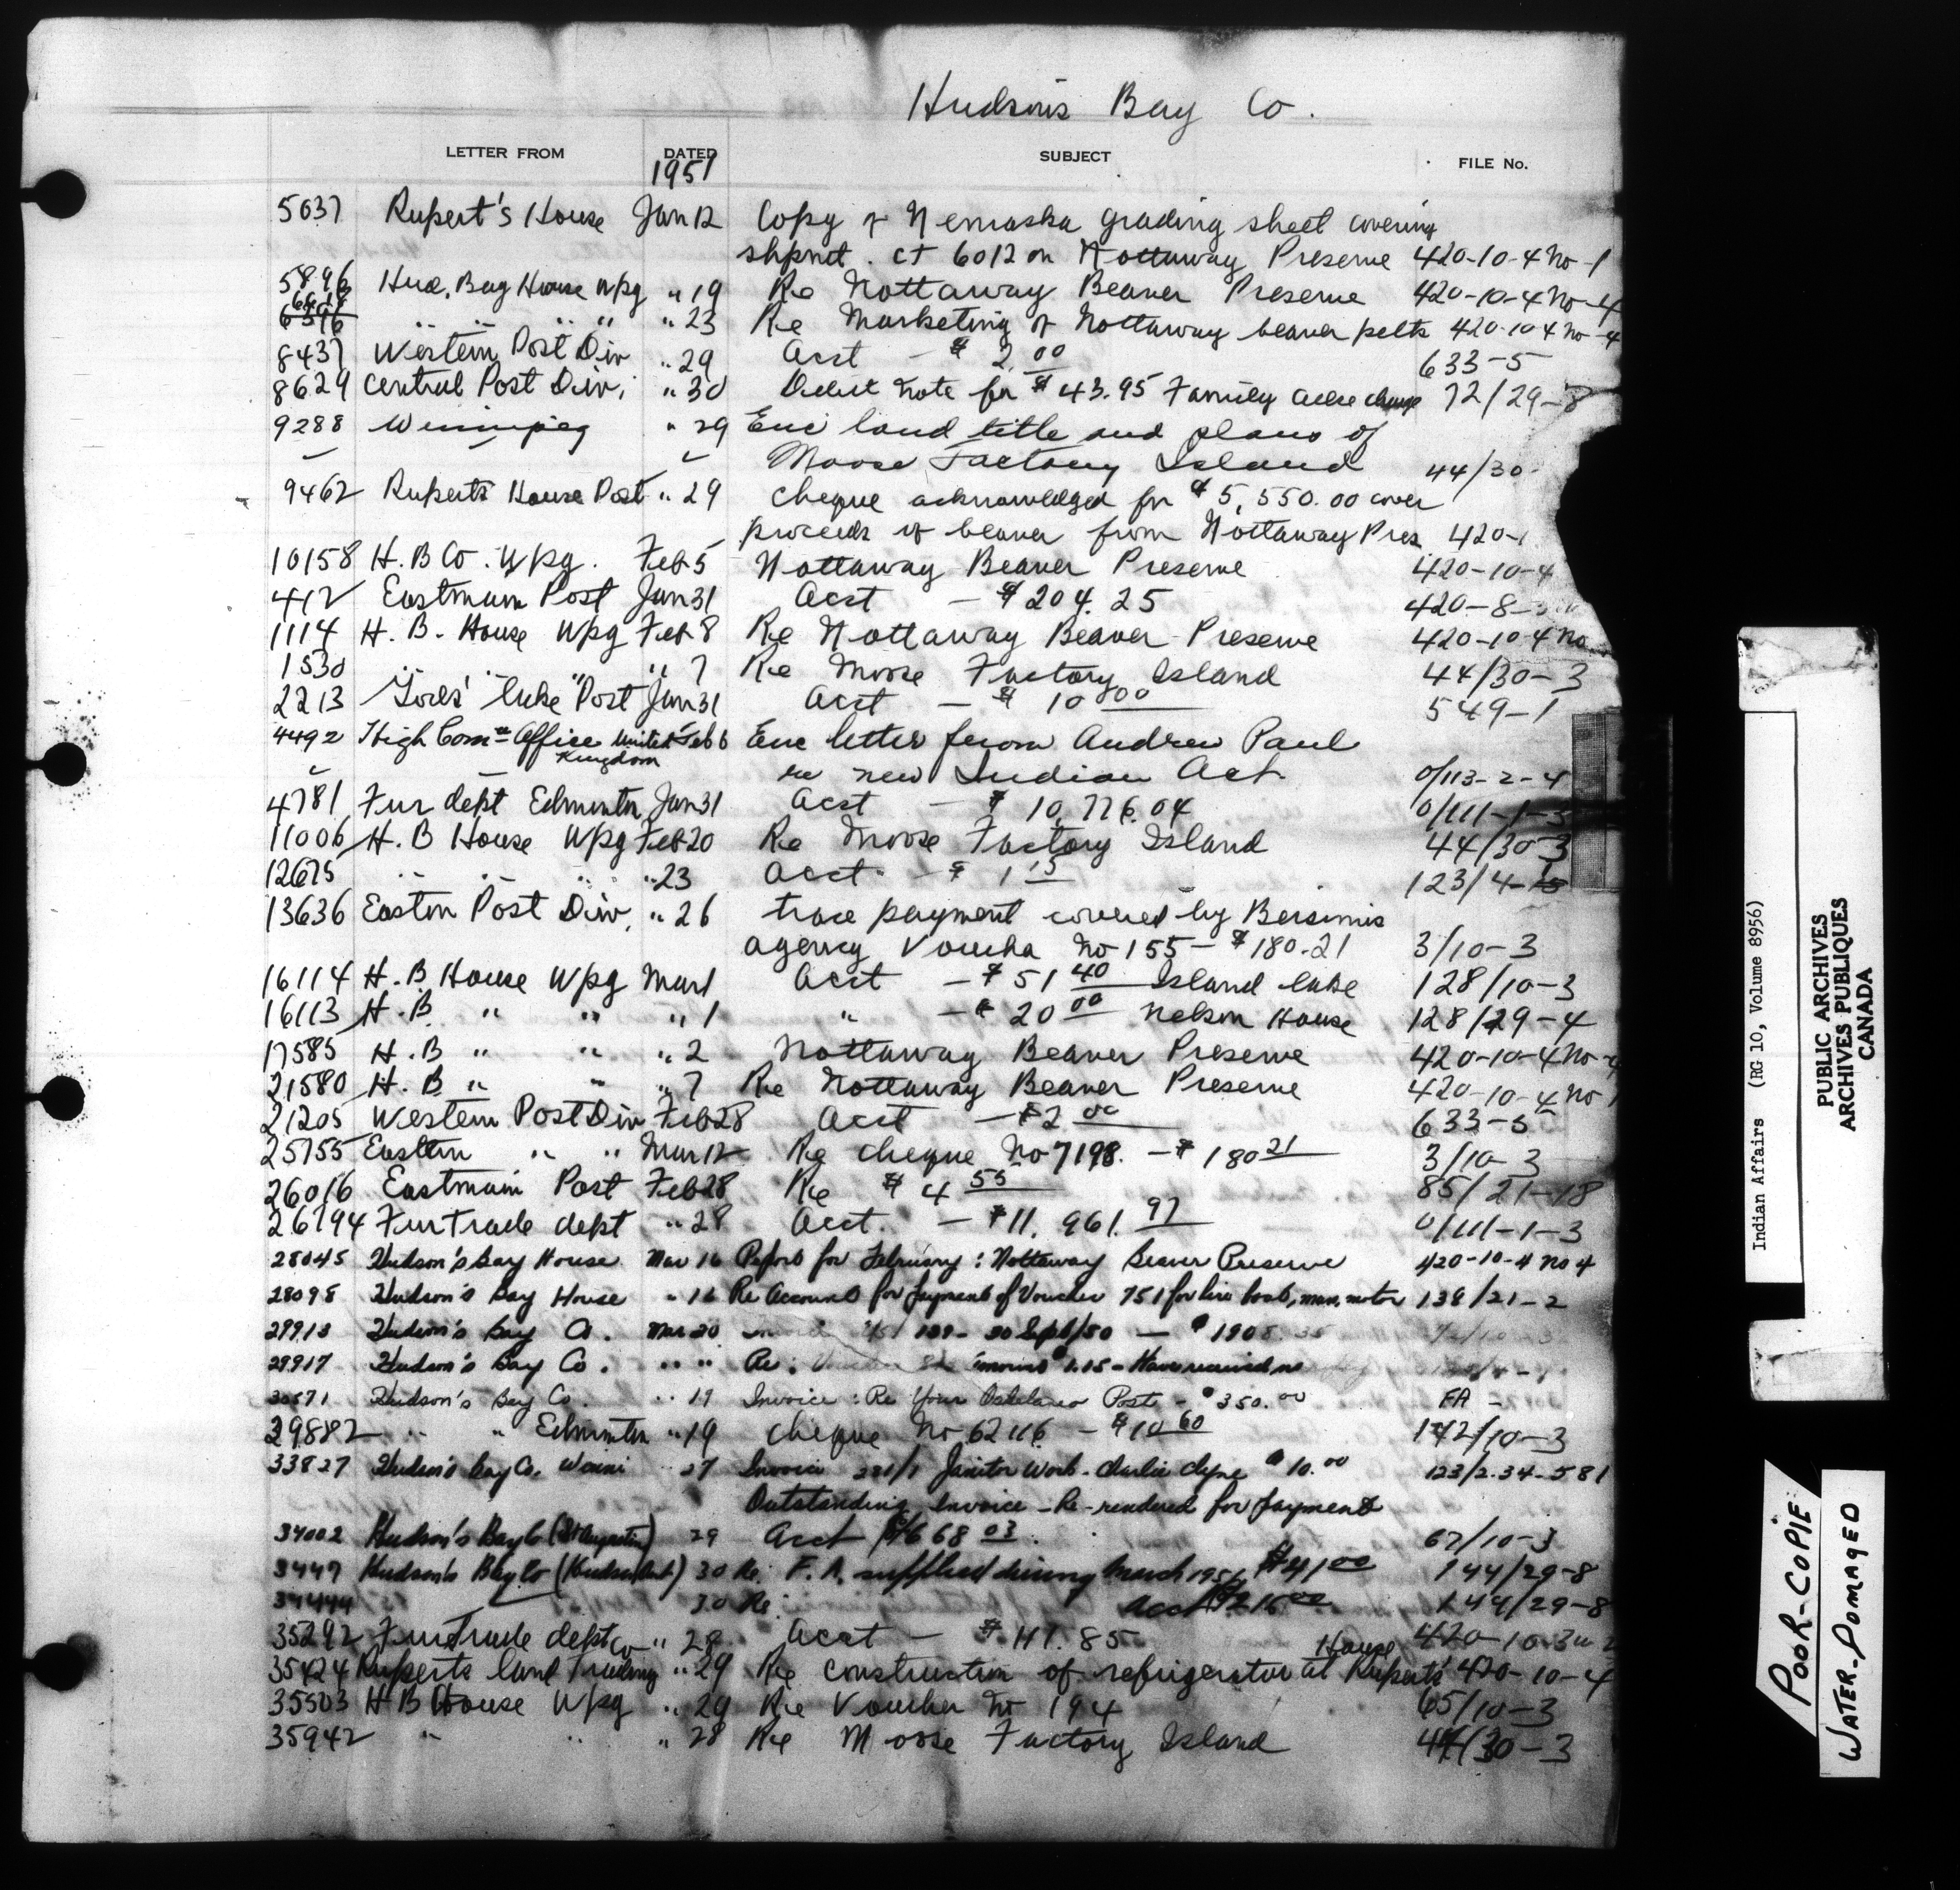 Hudson's Bay Co.
LETTER FROM DATED SUBJECT FILE No.
1951
5037 Rupert's House Jan 12 Copy of Nemaska grading sheet covering
shpmt. ct 6012 on Nottaway Preserve 420-10-4 No-1
5896 Hud. Bay House Wpg " 19 Re Nottaway Beaver Preserve 420-10-4 No-4
6396 " " " " " 23 Re Marketing of Nottaway beaver pelts 420-10-4 No-4
8437 Western Post Div " 29 Acct - $ 2.00 633-5
8629 Central Post Div. " 30 Debit note for $43.95 Family 72/29-8
9288 Winnipeg " 29 Enc land title and plans of
Moose Factory Island 44/30-
9462 Rupert's House Post " 29 cheque acknowledged for $5,550.00 cover
proceeds of beaver from Nottaway Pres 420-1
10158 H. B Co. Wpg. Feb 5 Nottaway Beaver Preserve 420-10-4
412 Eastmain Post Jan 31 Acct - $204.25 420-8-
1114 H. B. House Wpg Feb 8 Re Nottaway Beaver Preserve 420-10-4 No
1530 " " " " 7 Re Moose Factory Island 44/30-3
2213 God's Lake Post Jan 31 Acct - $ 10 00 549-1
4492 High Comr Office United Feb 6 Enc letter from Andrew Paul
Kingdom re new Indian Act 0/113-2-4
4781 Fur dept Edmonton Jan 31 Acct - $ 10,776.04 0/111-1-3
11006 H. B House Wpg Feb 20 Re Moose Factory Island 44/30-3
12675 " " " " 23 Acct - $ 1 15 123/4-
13636 Eastern Post Div. " 26 trace payment covered by Bersimis
agency Voucher No 155 - $180.21 3/10-3
16114 H. B House Wpg Mar 1 Acct - $ 51 40 Island Lake 128/10-3
16113 H. B. " " " 1 " - $ 20 00 Nelson House 128/29-4
17585 H. B " " " 2 Nottaway Beaver Preserve 420-10-4 No-4
21580 H. B " " " 7 Re Nottaway Beaver Preserve 420-10-4 No
21205 Western Post Div Feb 28 Acct - $2 00 633-5
25755 Eastern " " Mar 12 Re cheque No 7198. - $ 180 21 3/10-3
26016 Eastmain Post Feb 28 Re $ 4 55 85/21-18
26794 Fur Trade dept " 28 Acct. - $11. 961. 97 0/111-1-3
28045 Hudson's Bay House Mar 16 Report for February: Nottaway Beaver Preserve 420-10-4 No 4
28098 Hudson's Bay House " 16 Re Account for payment of Voucher 751 for hire boat, man, motor 138/21-2
29913 Hudson's Bay Co. Mar 20 30 Sept/50 - $1908.35
29917 Hudson's Bay Co. " " Re: $1.15 - Have received no
30571 Hudson's Bay Co. " 19 Invoice: Re Your Post - $350.00 FA -
29882 " " Edmonton " 19 cheque No 62116 - $10 60 142/10-3
33827 Hudson's Bay Co. " 27 Invoice 281/1 Janitor Work - Charlie Clyne $10.00 123/2.34-581
Outstanding Invoice - Re-rendered for payment
34002 Hudson's Bay Co (St Augustin) 29 Acct $668 03 67/10-3
3447 Hudson's Bay Co 30 Re: F. A. supplied during March 1951 $41 00 144/29-8
30 Re: acct $216 00 144/29-8
35292 Fur Trade dept " 28 Acct - $ 117.85 420-10-3
35424 Rupert's Land Trading Co " 29 Re construction of refrigerator at Rupert's House 420-10-4
35503 H B House Wpg " 29 Re Voucher No 194 65/10-3
35942 " " " 28 Re Moose Factory Island 44/30-3
Indian Affairs (RG 10, Volume 8956)
PUBLIC ARCHIVES
ARCHIVES PUBLIQUES
CANADA
POOR-COPIE
WATER-DOMAGED